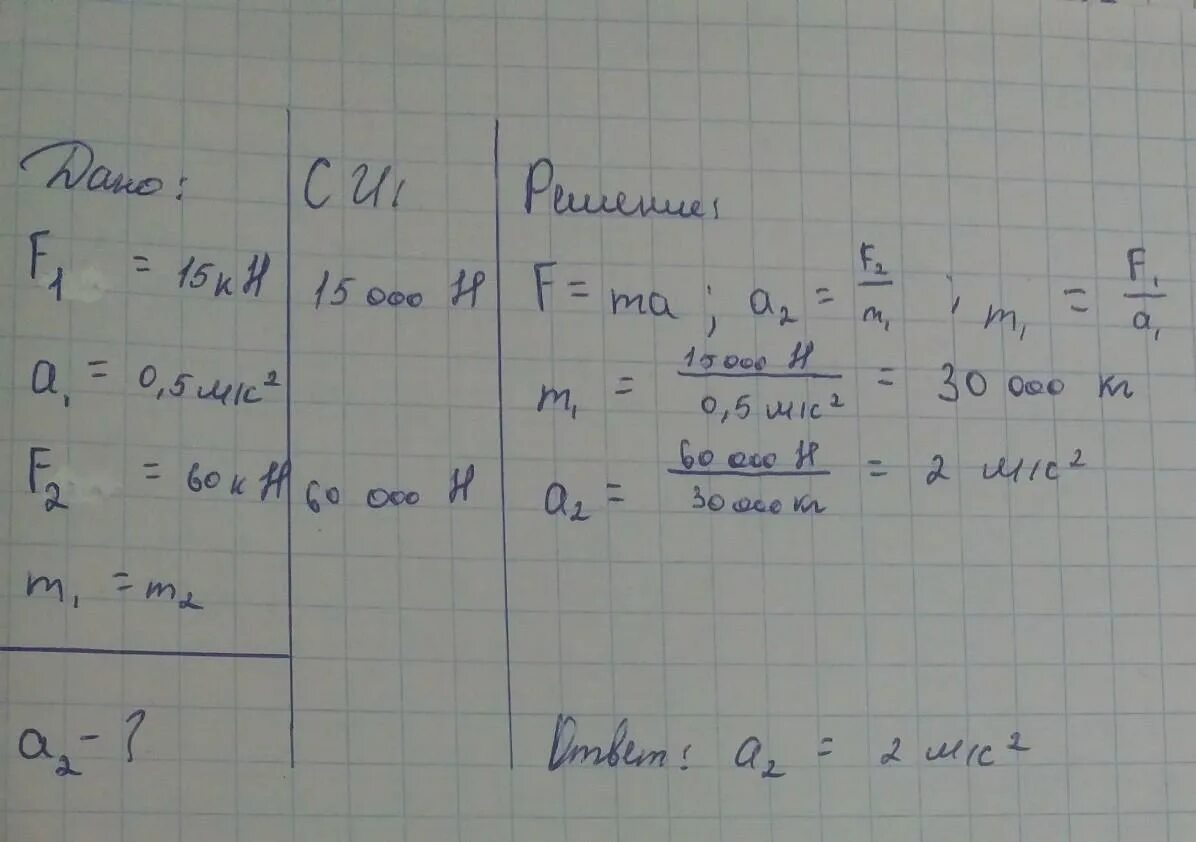 Дано:
F₁ = 15кН
a₁ = 0,5м/с²
F₂ = 60кН
m₁ = m₂
a₂ - ?
СИ:
15 000 Н
60 000 Н
Решение:
F = ma ; a₂ = F₂/m₁ ; m₁ = F₁/a₁
m₁ = 15000 Н / 0,5 м/с² = 30 000 кг
a₂ = 60 000 Н / 30 000 кг = 2 м/с²
Ответ: a₂ = 2 м/с²